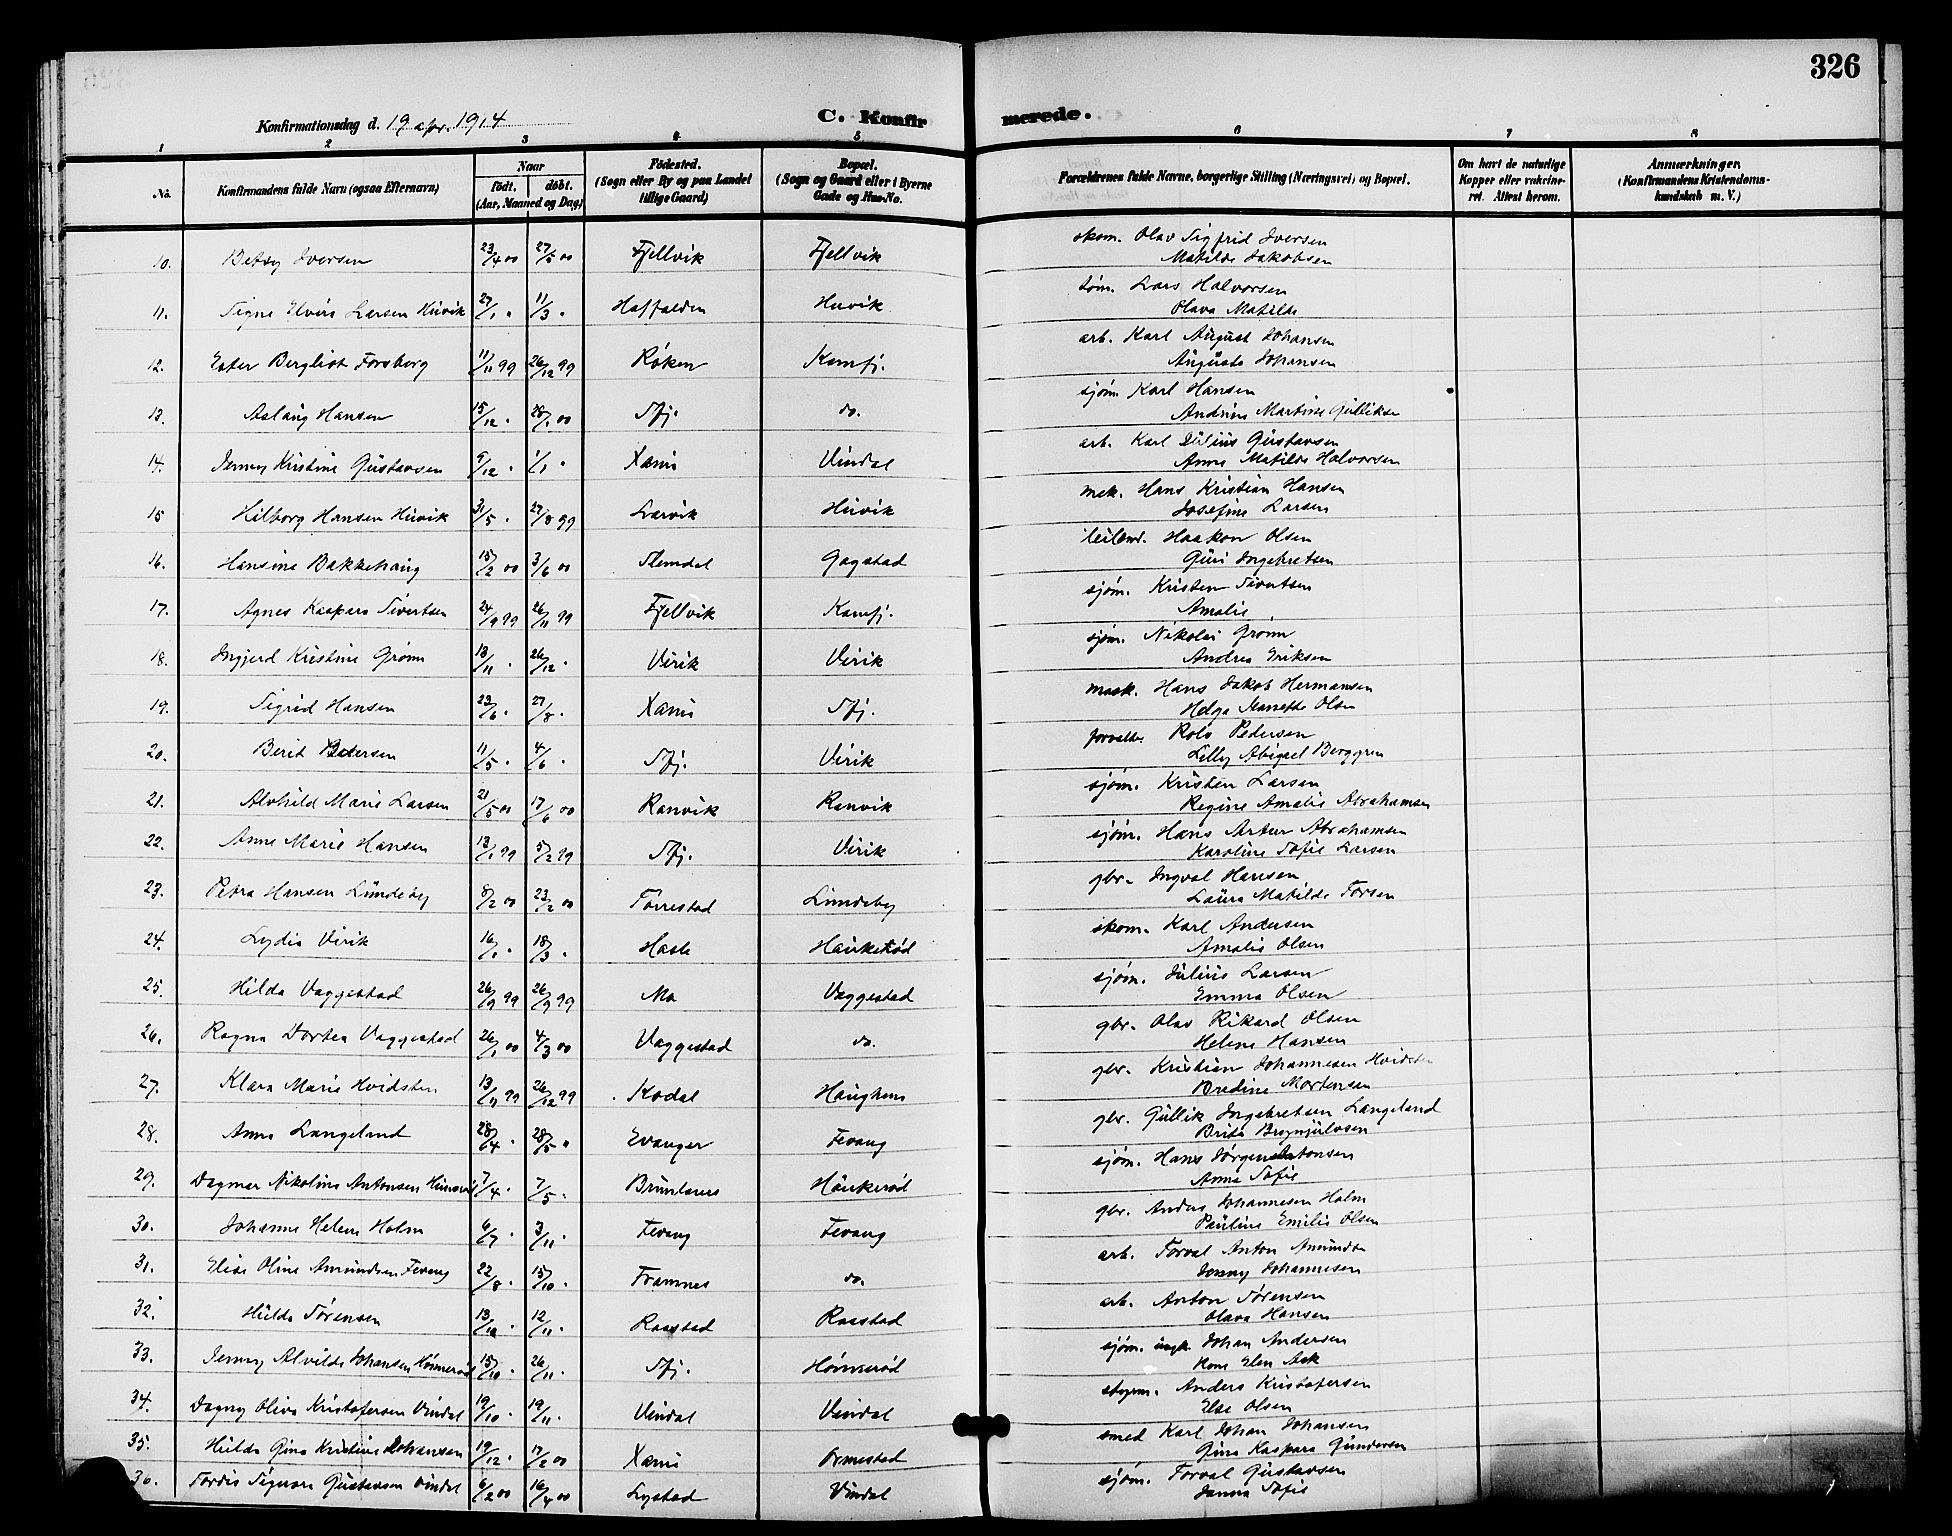 326
Konfirmationsdag d. 19 apr. 1914
C. Konfirmerede.
1 2 3 4 5 6 7 8
No.
Konfirmandens fulde Navn (ogsaa Efternavn)
Naar
født. døbt.
(Aar, Maaned og Dag)
Fødested.
(Sogn eller By og paa Landet
tillige Gaard)
Bopæl.
(Sogn og Gaard eller i Byerne
Gade og Hus-No.
Forældrenes fulde Navne, borgerlige Stilling (Næringsvei) og Bopæl.
Om havt de naturlige
Kopper eller vakcine-
ret. Attest herom.
Anmærkninger
(Konfirmandens Kristendoms-
kundskab m. V.)
10. Betsy Iversen 23/4 00 27/5 00 Fjellvik Fjellvik skom. Olav Sigfrid Iversen
Matilde Jakobsen
11. Signe Elvira Larsen Huvik 11/3 . Huvik tøm. Lars Halvorsen
Olava Matilde
12. Ester Bergliot Forsberg 11/11 99 26/12 99 Røken Kamfj. arb. Karl August Johansen
Augusta Johansen
13. Aslaug Hansen 15/12 . 28/1 00 Sfj. do. sjøm. Karl Hansen
Andrine Martine Gulliksen
14. Jenny Kristine Gustavsen 9/12 . 1/1 . Xania Vindal arb. Karl Julius Gustavsen
Anna Matilde Halvorsen
15 Hilborg Hansen Huvik 31/5 . 27/8 99 Larvik Huvik mek. Hans Kristian Hansen
Josefine Larsen
16. Hansine Bakkehaug 15/2 00 3/6 00 Slemdal Gogstad leilend. Haakon Olsen
Guri Ingebretsen
17. Agnes Kaspara Sivertsen 24/9 99 26/11 99 Fjellvik Kamfj. sjøm. Kristen Sivertsen
Amalie
18. Ingjerd Kristine Grønn 13/11 . 26/12 . Virik Virik sjøm. Nikolai Grønn
Andrea Eriksen
19. Sigrid Hansen 23/6 . 27/8 . Xania Sfj. mask. Hans Jakob Hermansen
Helga Nanette Olsen
20. Berit Pedersen 11/5 . 4/6 . Sfj. Virik forvalter. Rolv Pedersen
Lilly Abigael Berggren
21. Alvhild Marie Larsen 21/5 00 17/6 00 Ranvik Ranvik sjøm. Kristen Larsen
Regine Amalie Abrahamsen
22. Anna Marie Hansen 13/1 99 5/2 99 Sfj. Virik sjøm. Hans Artur Abrahamsen
Karoline Sofie Larsen
23. Petra Hansen Lundeby 8/2 00 23/2 00 Torrestad Lundeby gbr. Ingval Hansen
Laura Matilde Torsen
24. Lydia Virik 16/1 . 18/3 . Hasle Haukerød skom. Karl Andersen
Amalie Olsen
25. Hilda Vaggestad 26/9 99 Mo Vaggestad sjøm. Julius Larsen
Emma Olsen
26. Ragna Dortea Vaggestad 26/1 00 4/3 00 Vaggestad do. gbr. Olav Rikard Olsen
Helene Hansen
27. Klara Marie Hvidsten 13/11 99 26/12 99 Kodal Haughem gbr. Kristian Johannesen Hvidsten
Bredine Mortensen
28. Anna Langeland 28/4 . 28/5 . Evanger Fevang gbr. Gullik Ingebretsen Langeland
Brita Brynjulvsen
29. Dagmar Nikoline Antonsen 7/4 . 7/5 . Brunlanes Haukerød sjøm. Hans Jørgen Antonsen
Anna Sofie
30. Johanna Helene Holm 6/7 . 3/11 . Fevang Fevang gbr. Anders Johannesen Holm
Pauline Emilie Olsen
31. Elise Oline Amundsen Fevang 22/8 . 15/10 . Framnes do. arb. Torval Anton Amundsen
Jenny Johannesen
32. Hulda Sørensen 13/10 . 12/11 . Raastad Raastad arb. Anton Sørensen
Olava Hansen
33. Jenny Alvilde Johansen Hønnerød 15/10 . 26/11 . Sfj. Hønnerød sjøm. ungk. Johan Andersen
Elen Ask
34. Dagny Oliva Kristofersen Vindal 19/10 . 19/11 . Vindal Vindal styrm. Anders Kristofersen
Else Olsen
35. Hulda Gina Kristine Johansen 19/12 . 17/2 00 Xania Ormestad smed Karl Johan Johansen
Gina Kaspara Gundersen
36. Tordis Signora Gustavsen Vindal 6/2 00 16/4 00 Lystad Vindal sjøm. Torval Gustavsen
Janna Sofie